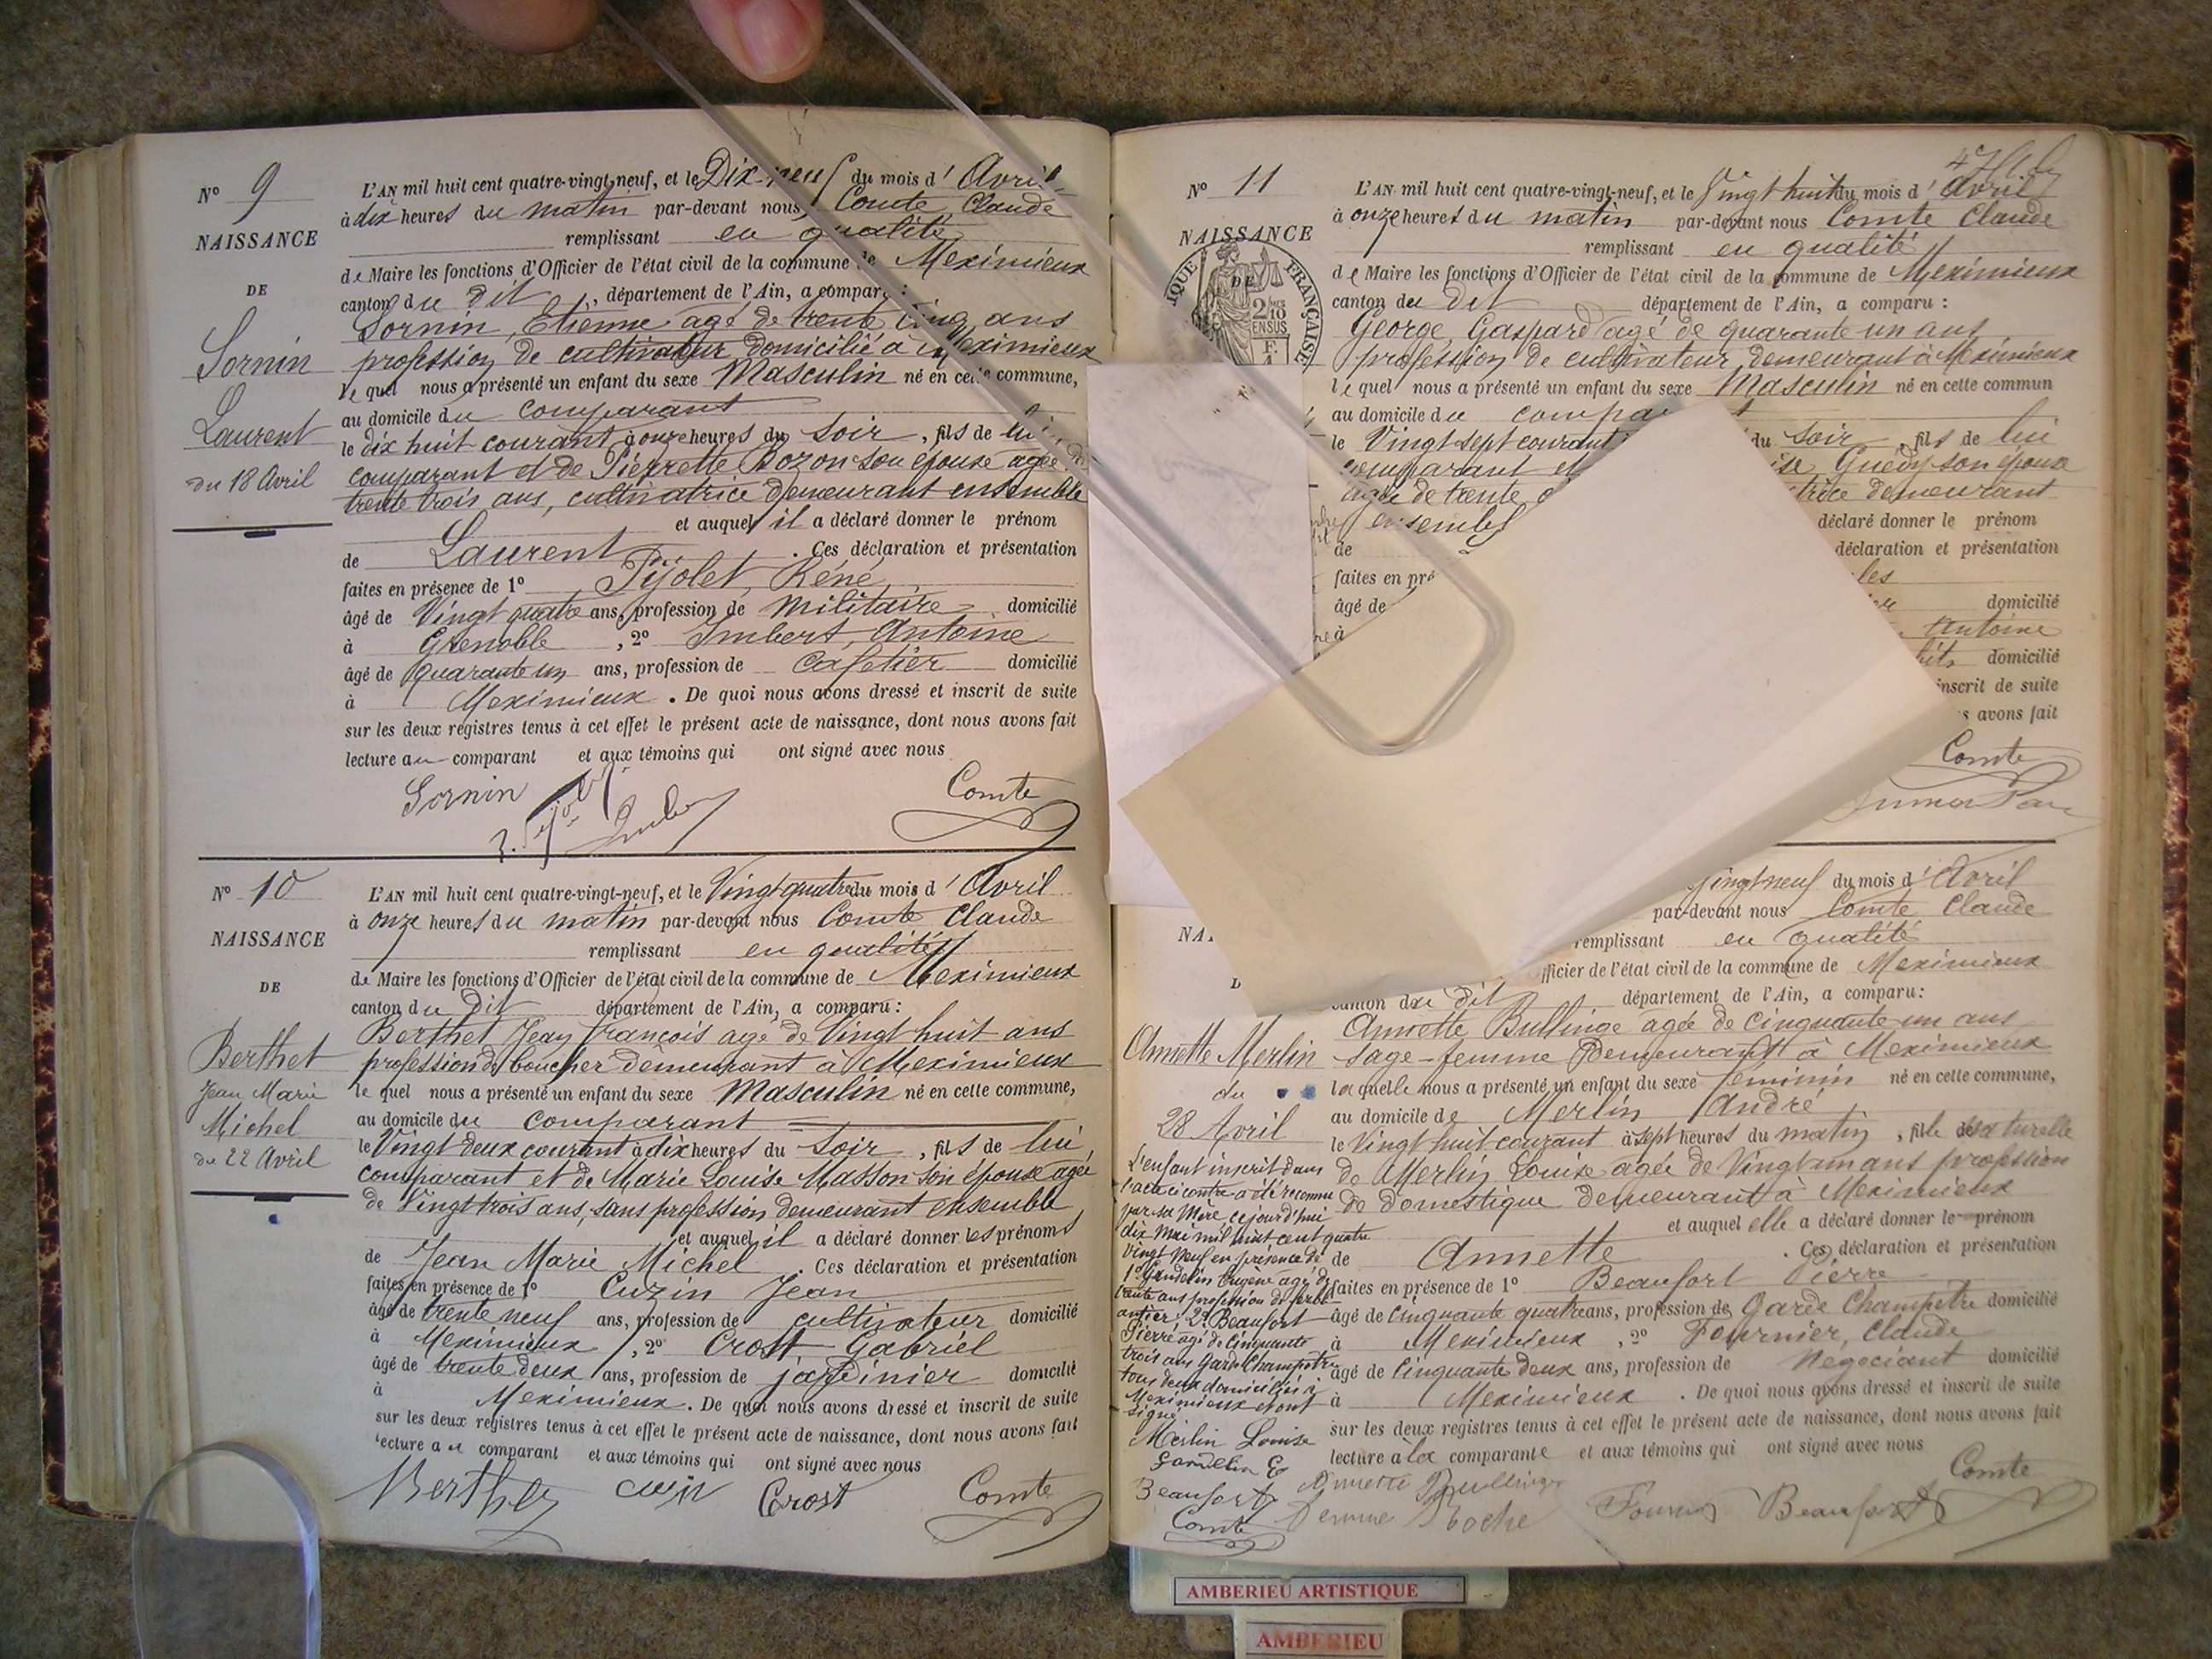 N° 9
NAISSANCE
DE
Sornin
Laurent
du 18 Avril
L'AN mil huit cent quatre-vingt-neuf, et le Dix-neuf du mois d'Avril
à dix heures du matin par-devant nous Comte Claude
remplissant en qualité
de Maire les fonctions d'Officier de l'état civil de la commune de Meximieux
canton du dit, département de l'Ain, a comparu :
Sornin, Etienne agé de trente cinq ans
profession de cultivateur domicilié à Meximieux
le quel nous a présenté un enfant du sexe Masculin né en cette commune,
au domicile du comparant
le dix huit courant à onze heures du soir, fils de lui
comparant et de Pierrette Bozon son épouse agée de
trente trois ans, cultivatrice demeurant ensemble
et auquel il a déclaré donner le prénom
de Laurent. Ces déclaration et présentation
faites en présence de 1° Pijolet, Réné
âgé de Vingt quatre ans, profession de militaire domicilié
à Grenoble, 2° Imbert, Antoine
âgé de quarante un ans, profession de cafetier domicilié
à Meximieux. De quoi nous avons dressé et inscrit de suite
sur les deux registres tenus à cet effet le présent acte de naissance, dont nous avons fait
lecture au comparant et aux témoins qui ont signé avec nous
Sornin
Comte
N° 10
NAISSANCE
DE
Berthet
Jean Marie
Michel
du 22 Avril
L'AN mil huit cent quatre-vingt-neuf, et le Vingt quatre du mois d'Avril
à onze heures du matin par-devant nous Comte Claude
remplissant en qualité
de Maire les fonctions d'Officier de l'état civil de la commune de Meximieux
canton du Dit département de l'Ain, a comparu :
Berthet Jean François agé de Vingt huit ans
profession de boucher demeurant à Meximieux
le quel nous a présenté un enfant du sexe Masculin né en cette commune,
au domicile du comparant
le Vingt deux courant à dix heures du soir, fils de lui
comparant et de Marie Louise Masson son épouse agée
de Vingt trois ans, sans profession demeurant ensemble
et auquel il a déclaré donner les prénoms
de Jean Marie Michel. Ces déclaration et présentation
faites en présence de 1° Cuzin Jean
âgé de trente neuf ans, profession de cultivateur domicilié
à Meximieux, 2° Crost Gabriel
âgé de trente deux ans, profession de jardinier domicilié
à Meximieux. De quoi nous avons dressé et inscrit de suite
sur les deux registres tenus à cet effet le présent acte de naissance, dont nous avons fait
lecture au comparant et aux témoins qui ont signé avec nous
Berthet Crost Comte
N° 11
NAISSANCE
DE
L'AN mil huit cent quatre-vingt-neuf, et le Vingt huit du mois d'Avril
à onze heures du matin par-devant nous Comte Claude
remplissant en qualité
de Maire les fonctions d'Officier de l'état civil de la commune de Meximieux
canton du Dit département de l'Ain, a comparu :
George Gaspard agé de quarante un ans
profession de cultivateur demeurant à Meximieux
le quel nous a présenté un enfant du sexe Masculin né en cette commun
au domicile du
le Vingt sept courant du soir, fils de lui
comparant et Guédy son épouse
agée de trente demeurant
ensemble
déclaré donner le prénom
de déclaration et présentation
faites en
âgé de domicilié
à Antoine
domicilié
inscrit de suite
avons fait
Comte
Vingt neuf du mois d'Avril
par-devant nous Comte Claude
remplissant en qualité
officier de l'état civil de la commune de Meximieux
canton du dit département de l'Ain, a comparu :
Annette Bullinge agée de cinquante un ans
sage-femme demeurant à Meximieux
la quelle nous a présenté un enfant du sexe féminin né en cette commune,
au domicile de Merlin André
le Vingt huit courant à sept heures du matin, fille naturelle
de Merlin Louise agée de Vingt un ans profession
de domestique demeurant à Meximieux
et auquel elle a déclaré donner le prénom
de Annette. Ces déclaration et présentation
faites en présence de 1° Beaufort Pierre
âgé de cinquante quatre ans, profession de Garde Champêtre domicilié
à Meximieux, 2° Fournier, Claude
âgé de cinquante deux ans, profession de Négociant domicilié
à Meximieux. De quoi nous avons dressé et inscrit de suite
sur les deux registres tenus à cet effet le présent acte de naissance, dont nous avons fait
lecture à la comparante et aux témoins qui ont signé avec nous
Annette Bullinge
femme Roche Beaufort Comte
Annette Merlin
du
28 Avril
L'enfant inscrit dans
l'acte ci contre a été reconnu
par sa Mère, cejourd'hui
dix Mai mil huit cent quatre
Vingt Neuf en présence de
1° Gandelin Eugène agé de
trente ans profession de ferbl
antier; 2° Beaufort
Pierre agé de Cinquante
trois ans Garde Champetre
tous deux domiciliés à
Meximieux et ont
signé
Merlin Louise
Beaufort
Comte
AMBERIEU ARTISTIQUE
AMBERIEU